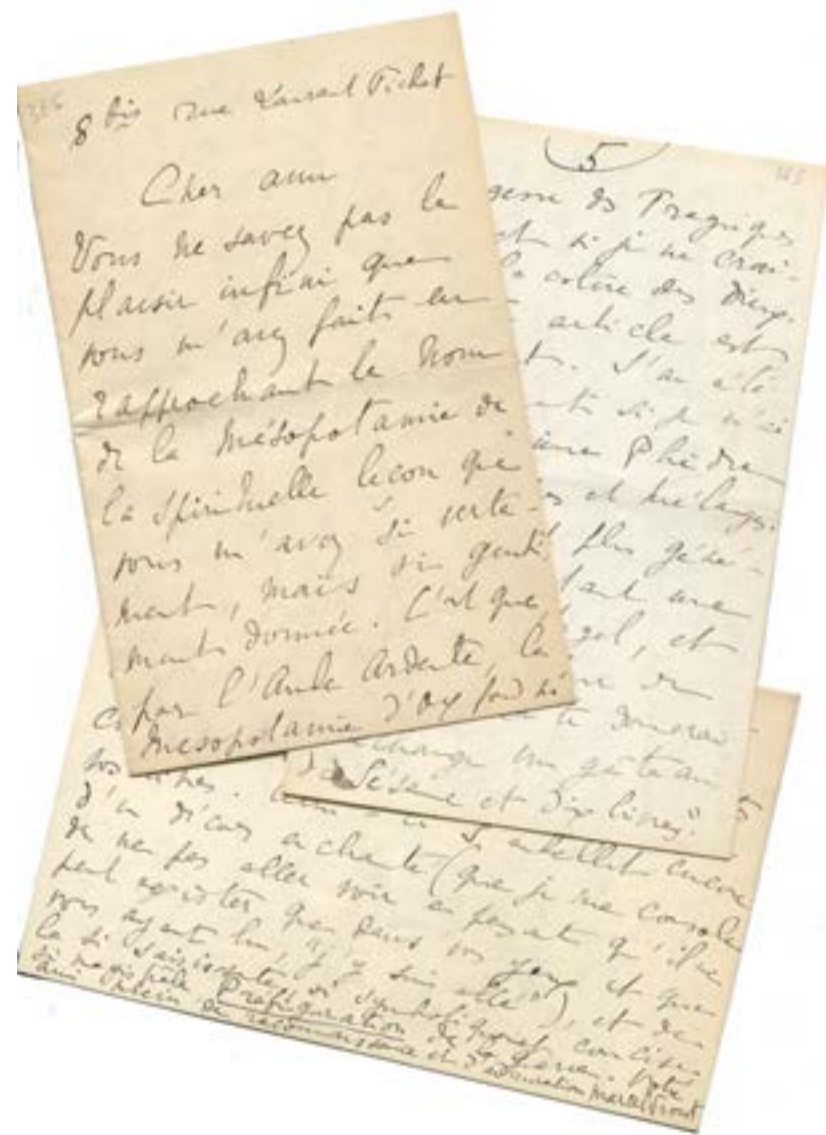 8 bis rue Laurent Pichat
Cher ami
Vous ne savez pas le
plaisir infini que
vous m'avez fait en
rapprochant le nom
de la Mésopotamie de
la spirituelle leçon que
vous m'avez si verte-
ment, mais si genti-
ment donnée. C'est que,
par l'Aube Ardente, la
Mesopotamie d'Oxford
5
des Tragiques
et si je ne crai-
la colère des Dieux.
article est
t. J'ai été
si je n'ai
Phèdre
et mélanges.
plus géné-
tant une
et
de
te donnerai
échange un gâteau
de Sésame et dix livres."
embellit encore
d'un décor enchanté (que je me console
de ne pas aller voir en pensant qu'il ne
peut exister que dans vos yeux et que
vous ayant lu, j'y suis allé"), et de
la si saisissante, si symbolique et concise
si magistrale Préfiguration de la guerre. Votre
ami plein de reconnaissance et d'admiration Marcel Proust